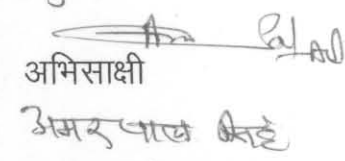 अभिसाक्षी
अमर पाल सिंह